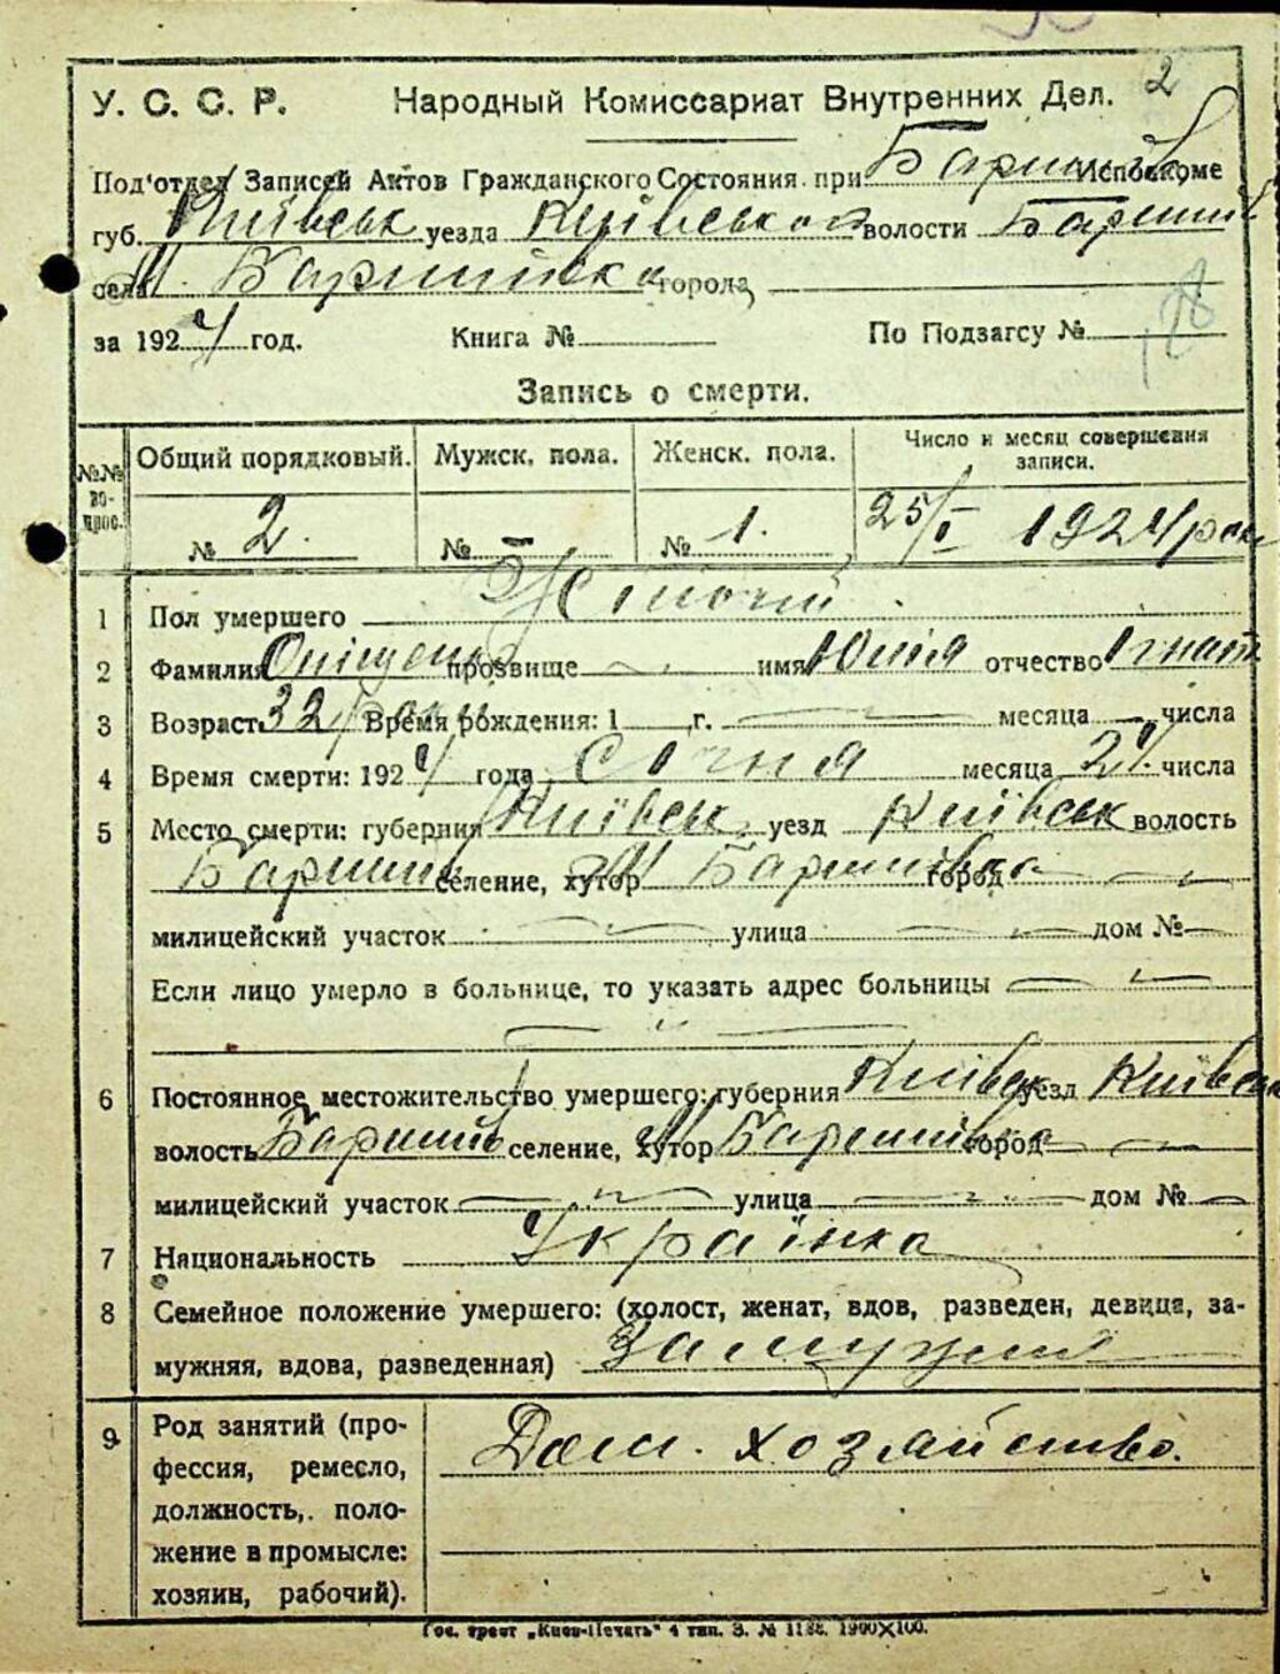 2
У. С. С. Р. Народный Комиссариат Внутренних Дел.
Под'отдел Записей Актов Гражданского Состояния при Баришів Исполкоме
губ. Київськ уезда Київськоі волости Баришів
села М. Баришівка города
за 1924 год. Книга № По Подзагсу №
Запись о смерти.
№№ вопрос. Общий порядковый. Мужск. пола. Женск. пола. Число и месяц совершения записи.
№ 2. № – № 1. 25/I 1924 рок
1 Пол умершего Жіночий
2 Фамилия прозвище имя Юлія отчество Ігнат
3 Возраст 32 роки Время рождения: 1 г. месяца числа
4 Время смерти: 1924 года Січня месяца числа
5 Место смерти: губерния Київськ. уезд Київськ волость
Баришів селение, хутор М Баришівка город
милицейский участок улица дом №
Если лицо умерло в больнице, то указать адрес больницы
6 Постоянное местожительство умершего: губерния Київськ уезд Київськ
волость Баришів селение, хутор М Баришівка город
милицейский участок улица дом №
7 Национальность Українка
8 Семейное положение умершего: (холост, женат, вдов, разведен, девица, за-
мужняя, вдова, разведенная) Замужня
9 Род занятий (про- Дом. хозяйство.
фессия, ремесло,
должность, поло-
жение в промысле:
хозяин, рабочий).
Гос. трест „Киев-Печать" 4 тип. З. № 1900×100.